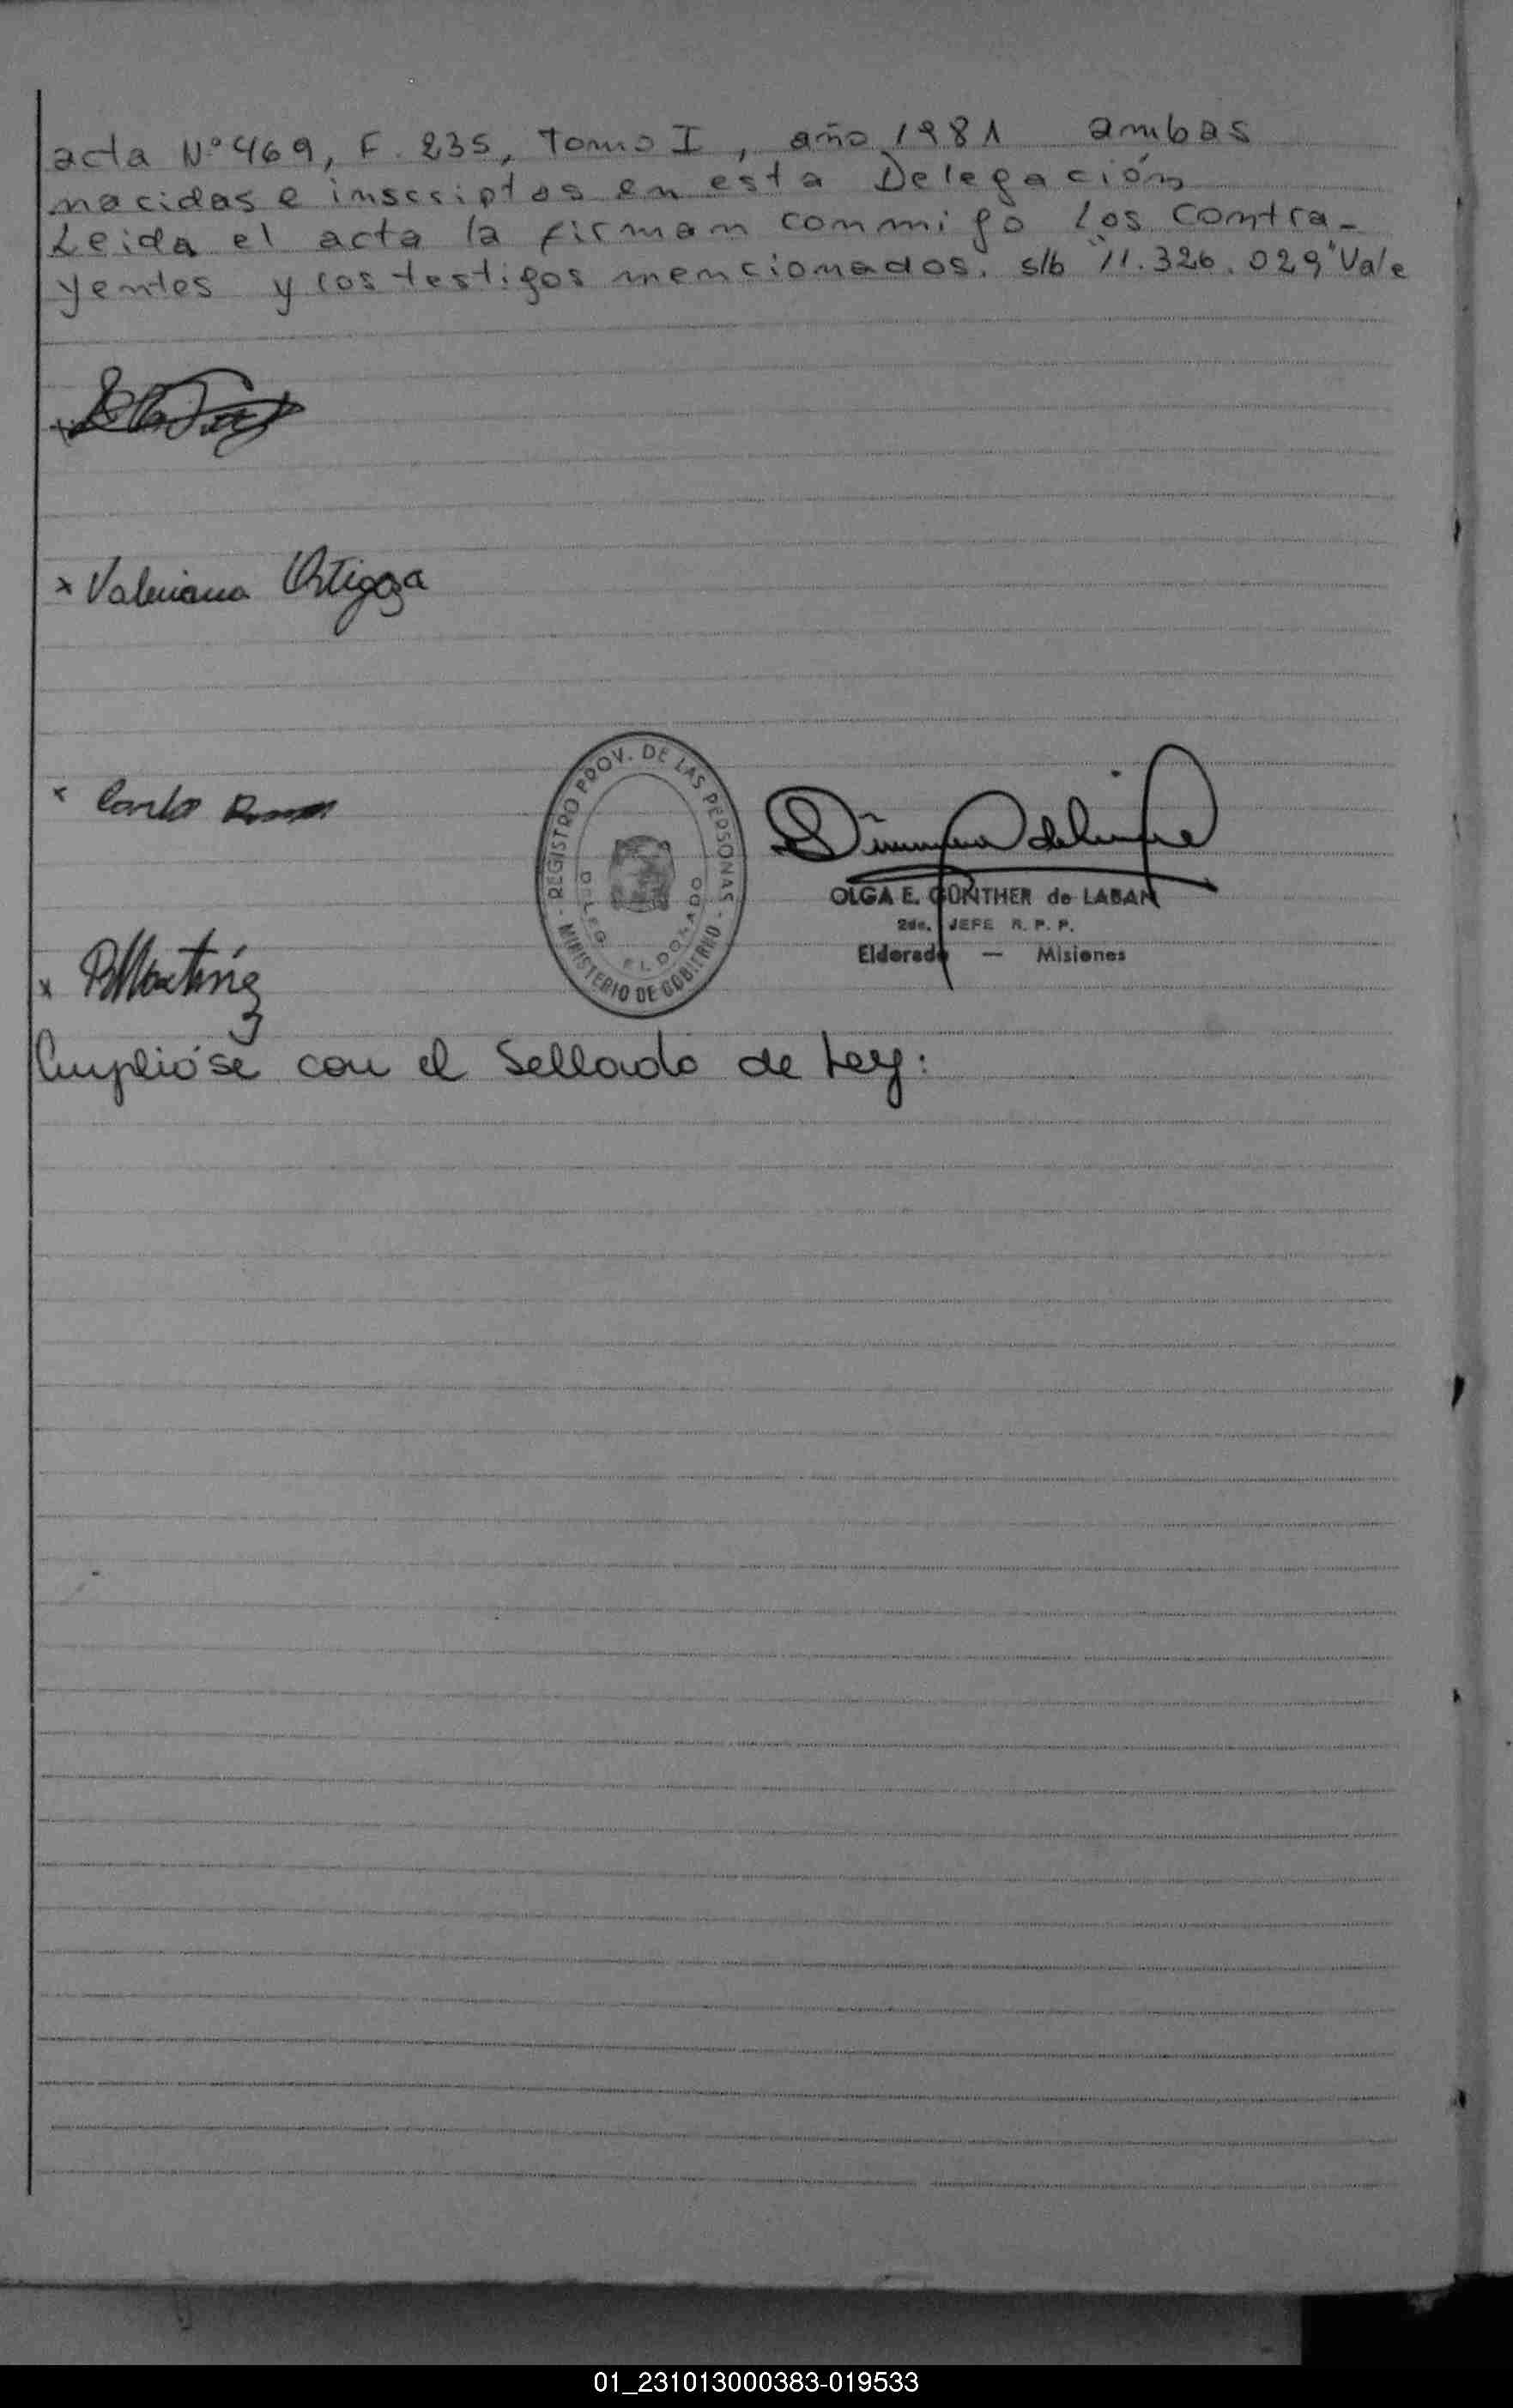 acta Nº 469, F. 235, Tomo I, año 1981 ambas
nacidas e inscriptas en esta Delegación
Leida el acta la firman conmigo los contra-
yentes y los testigos mencionados. s/b "11.326.029" Vale
x Valeriana Ortigoza
x Carlos
REGISTRO PROV. DE LAS PERSONAS - MINISTERIO DE GOBIERNO -
DELEG. ELDORADO
OLGA E. GÜNTHER de LABAN
2do. JEFE R. P. P.
Eldorado — Misiones
x RMartínez
Cumplióse con el Sellado de Ley:
01_231013000383-019533